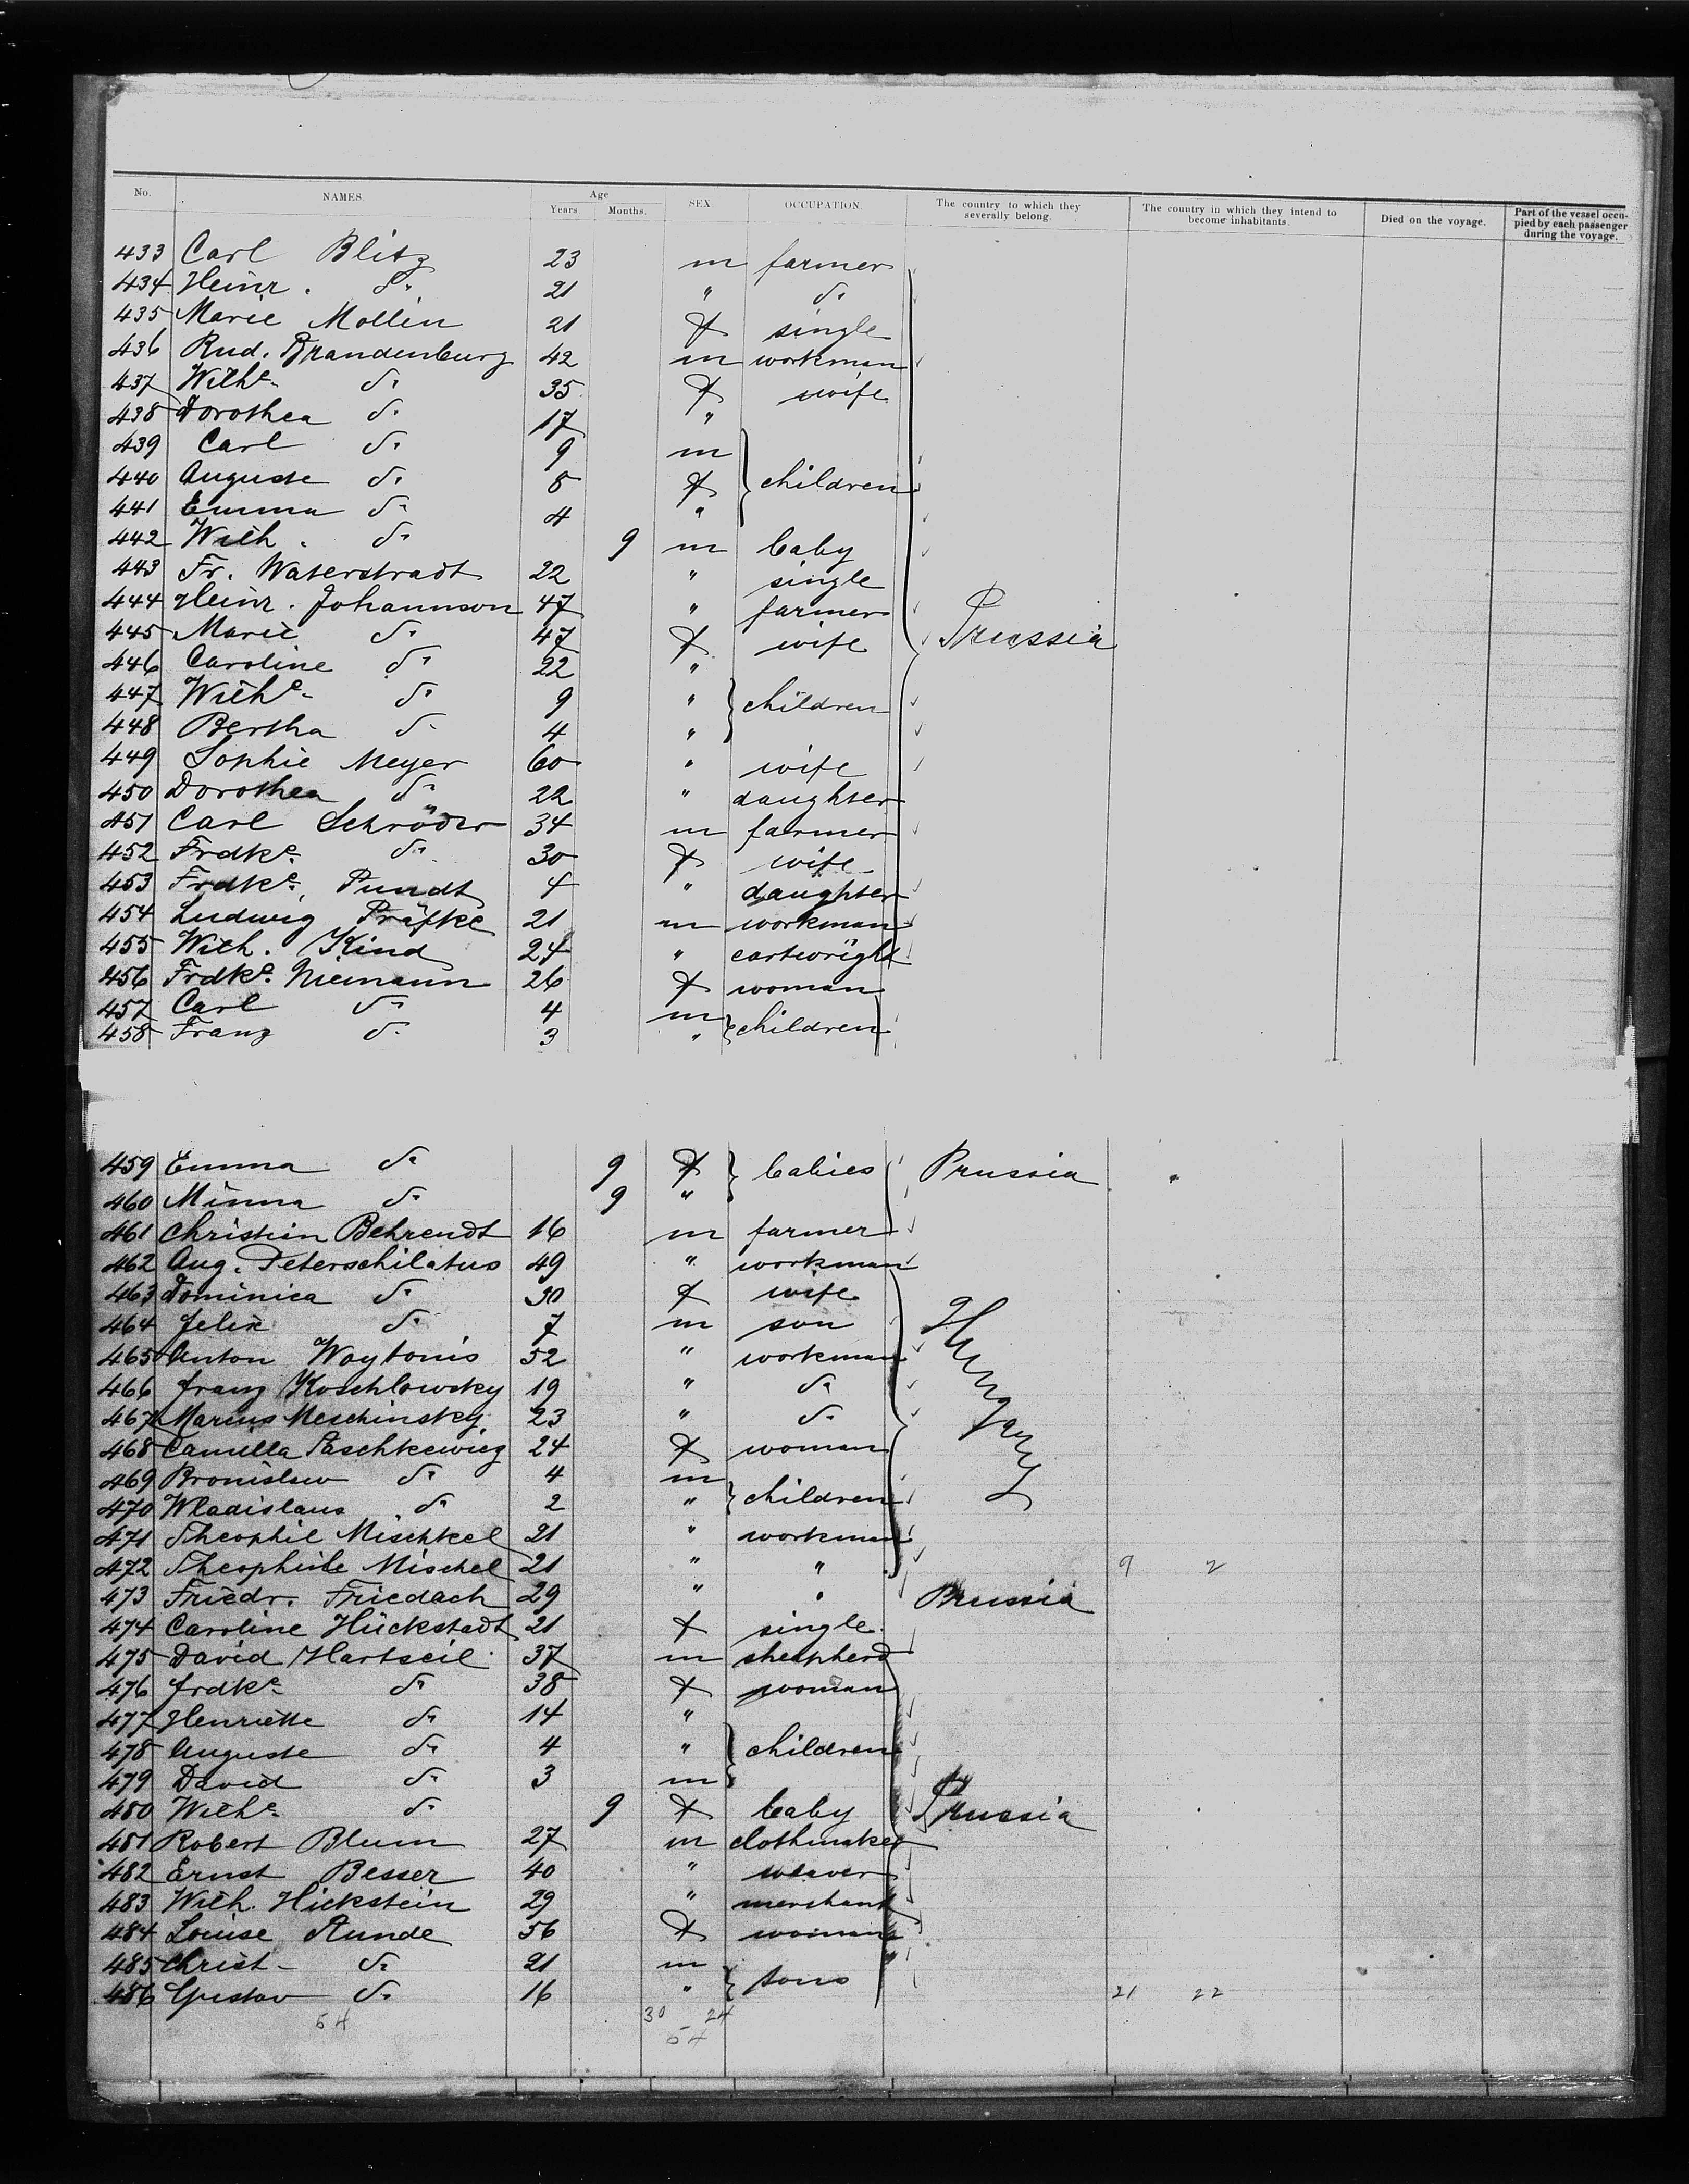 No. NAMES Age Years. Months. SEX. OCCUPATION. The country to which they severally belong. The country in which they intend to become inhabitants. Died on the voyage. Part of the vessel occupied by each passenger during the voyage.
433 Carl Blitz 23 m farmer
434 Heinr. do 21 " do
435 Marie Mollin 21 f single
436 Rud. Brandenburg 42 m workman
437 Wilhe. do 35 f wife
438 Dorothea do 17 "
439 Carl do 9 m
440 Auguste do 8 f children
441 Emma do 4 "
442 Wilh. do 9 m baby
443 Fr. Waterstradt 22 " single
444 Heinr. Johannson 47 " farmer
445 Marie do 47 f wife Prussia
446 Caroline do 22 "
447 Wilhe. do 9 " children
448 Bertha do 4 "
449 Sophie Meyer 60 " wife
450 Dorothea do 22 " daughter
451 Carl Schröder 34 m farmer
452 Frdke. do 30 f wife
453 Frdke. Pundt 4 " daughter
454 Ludwig Präfke 21 m workman
455 Wilh. Kind 24 " cartwright
456 Frdke. Niemann 26 f woman
457 Carl do 4 m children
458 Franz do 3 "
459 Emma do 9 f babies Prussia
460 Minna do 9 "
461 Christian Behrendt 16 m farmer
462 Aug. Peterschilatus 49 " workman
463 Dominica do 30 f wife
464 Felix do 7 m son Hungary
465 Anton Woytonis 52 " workman
466 Franz Koschlowsky 19 " do
467 Marius Meschinsky 23 " do
468 Camilla Paschkewicz 24 f woman
469 Bronislaw do 4 m children
470 Wladislaus do 2 "
471 Theophil Mischkel 21 " workman
472 Theophile Mischel 21 " " 9 2
473 Friedr. Friedach 29 " " Prussia
474 Caroline Hückstadt 21 f single
475 David Hartseil 37 m shepherd
476 Frdke. do 38 f woman
477 Henriette do 14 "
478 Auguste do 4 " children
479 David do 3 m
480 Wilhe. do 9 f baby Prussia
481 Robert Blum 27 m clothmaker
482 Ernst Besser 40 " weaver
483 Wilh. Hickstein 29 " merchant
484 Louise Runde 56 f woman
485 Christ. do 21 m sons
486 Gustav do 16 " 21 22
54 30 24
54